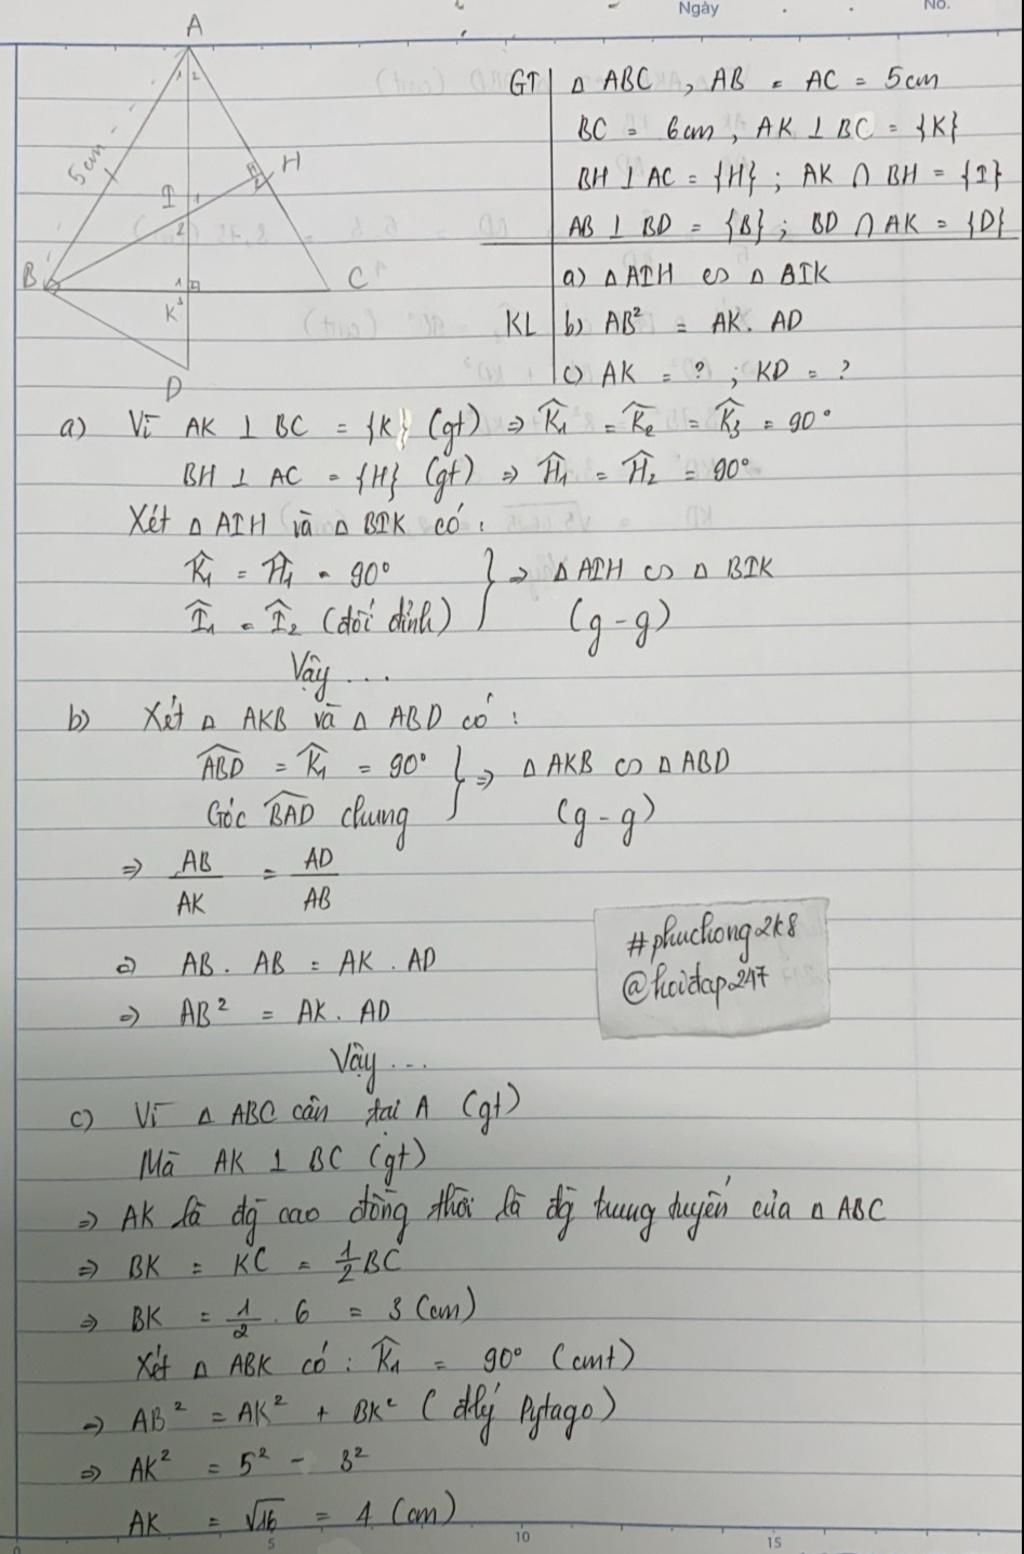 Ngày
No.
A
1 2
5cm
H
I
1
2
B
C
1
K 3
D
GT Δ ABC , AB = AC = 5cm
BC = 6cm, AK ⊥ BC = {K}
BH ⊥ AC = {H} ; AK ∩ BH = {I}
AB ⊥ BD = {B} ; BD ∩ AK = {D}
a) Δ AIH ∽ Δ BIK
KL b) AB² = AK. AD
c) AK = ? ; KD = ?
a) Vì AK ⊥ BC = {K} (gt) ⇒ K̂₁ = K̂₂ = K̂₃ = 90°
BH ⊥ AC = {H} (gt) ⇒ Ĥ₁ = Ĥ₂ = 90°
Xét Δ AIH và Δ BIK có :
K̂₁ = Ĥ₁ = 90° } ⇒ Δ AIH ∽ Δ BIK
Î₁ = Î₂ (đối đỉnh) (g-g)
Vậy ...
b) Xét Δ AKB và Δ ABD có :
ABD = K̂₁ = 90° } ⇒ Δ AKB ∽ Δ ABD
Góc BAD chung (g-g)
⇒ AB/AK = AD/AB
⇒ AB . AB = AK . AD
⇒ AB² = AK. AD
#phuchong2k8
@hoidap247
Vậy ...
c) Vì Δ ABC cân tại A (gt)
Mà AK ⊥ BC (gt)
⇒ AK là đg cao đồng thời là đg trung tuyến của Δ ABC
⇒ BK = KC = 1/2 BC
⇒ BK = 1/2 . 6 = 3 (cm)
Xét Δ ABK có : K̂₁ = 90° (cmt)
⇒ AB² = AK² + BK² ( đlý Pytago)
⇒ AK² = 5² - 3²
AK = √16 = 4 (cm)
0 5 10 15